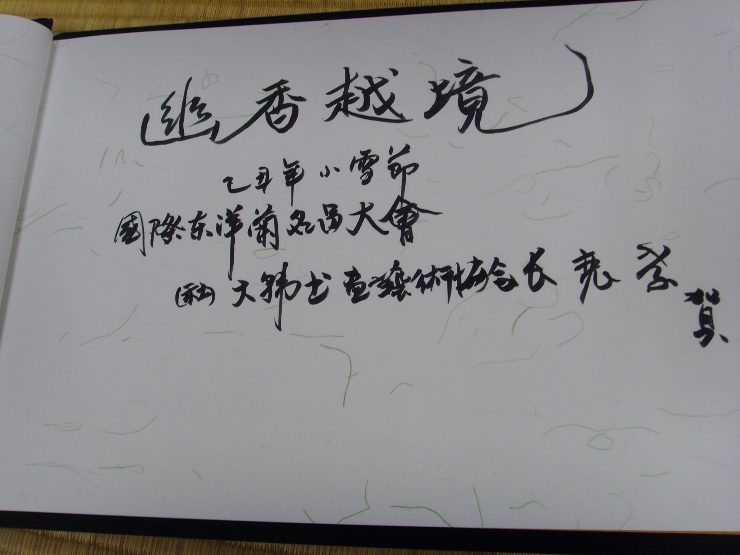 幽香越境
己丑年 小雪節
國際东洋蘭名品大會
(社) 大韩书畫藝術協会长
賀